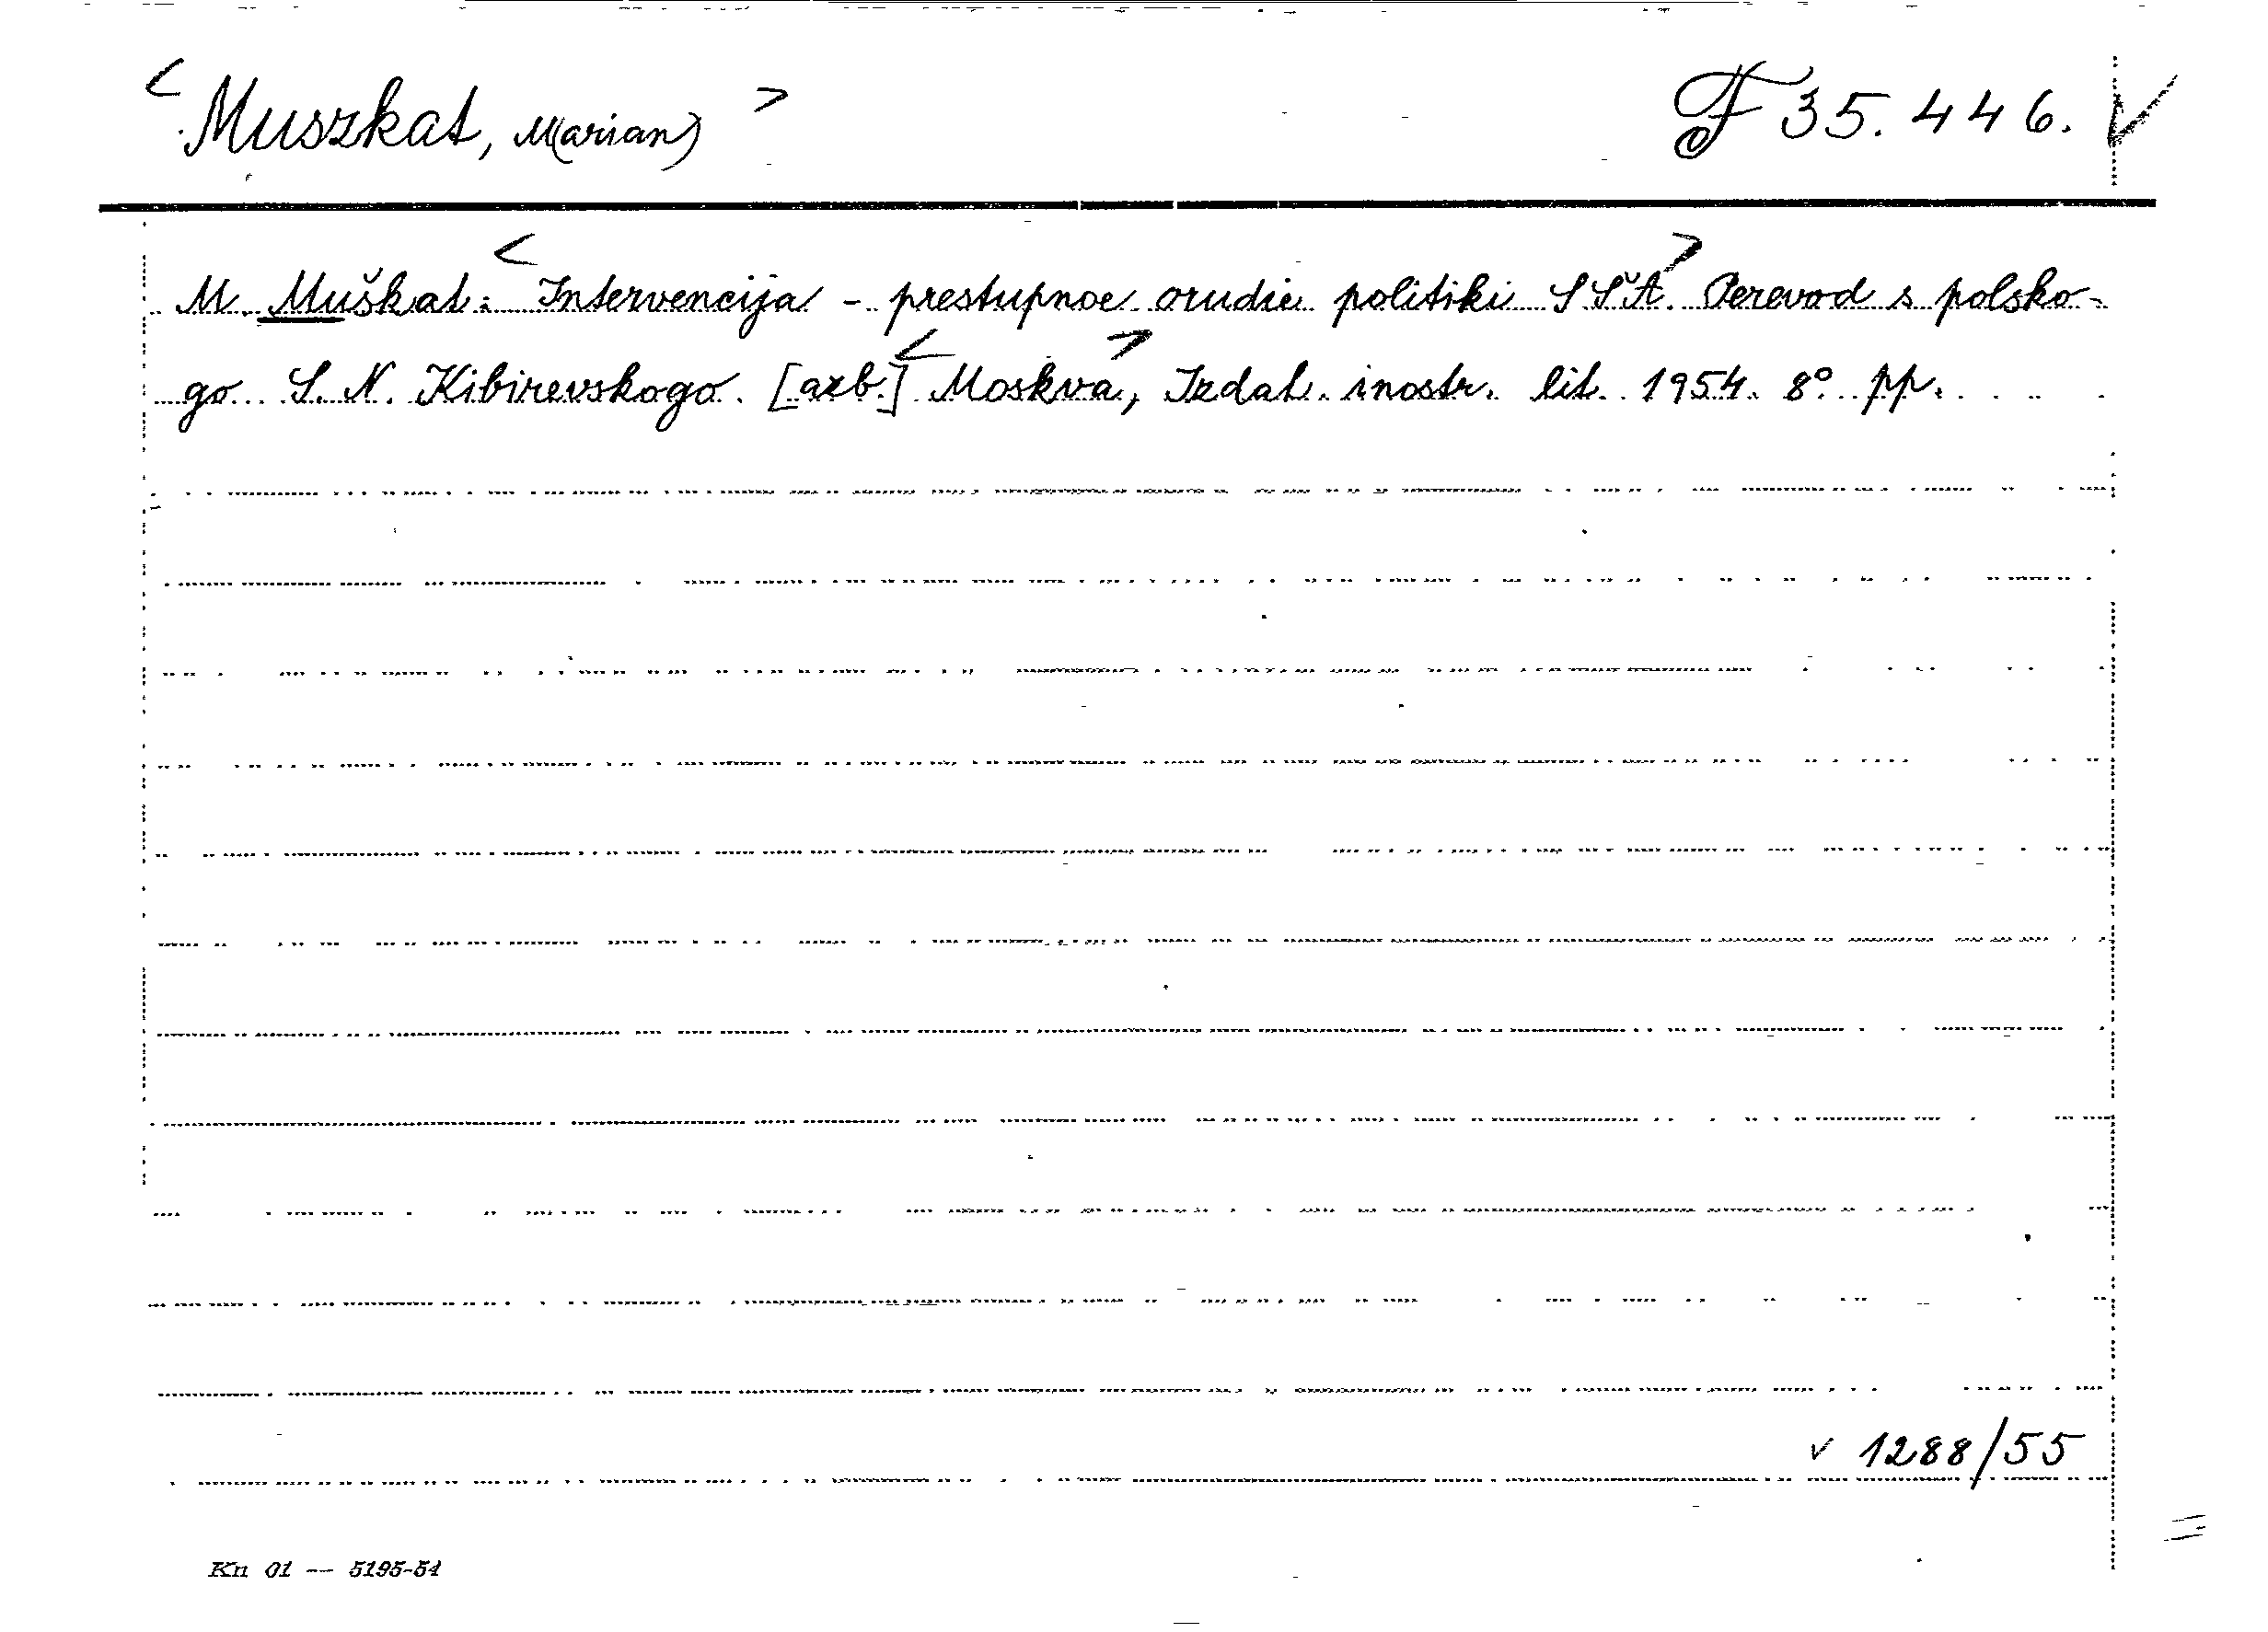 <Muszkat, M(arian)> F 35.446. √
M. Muškat: <Intervencija - prestupnoe orudie politiki SŠA>. Perevod s polsko-
go S. N. Kibirevskogo. [azb.] <Moskva>, Izdat. inostr. lit. 1954. 8° pp.
v 1288/55
Kn 01 — 5195-54